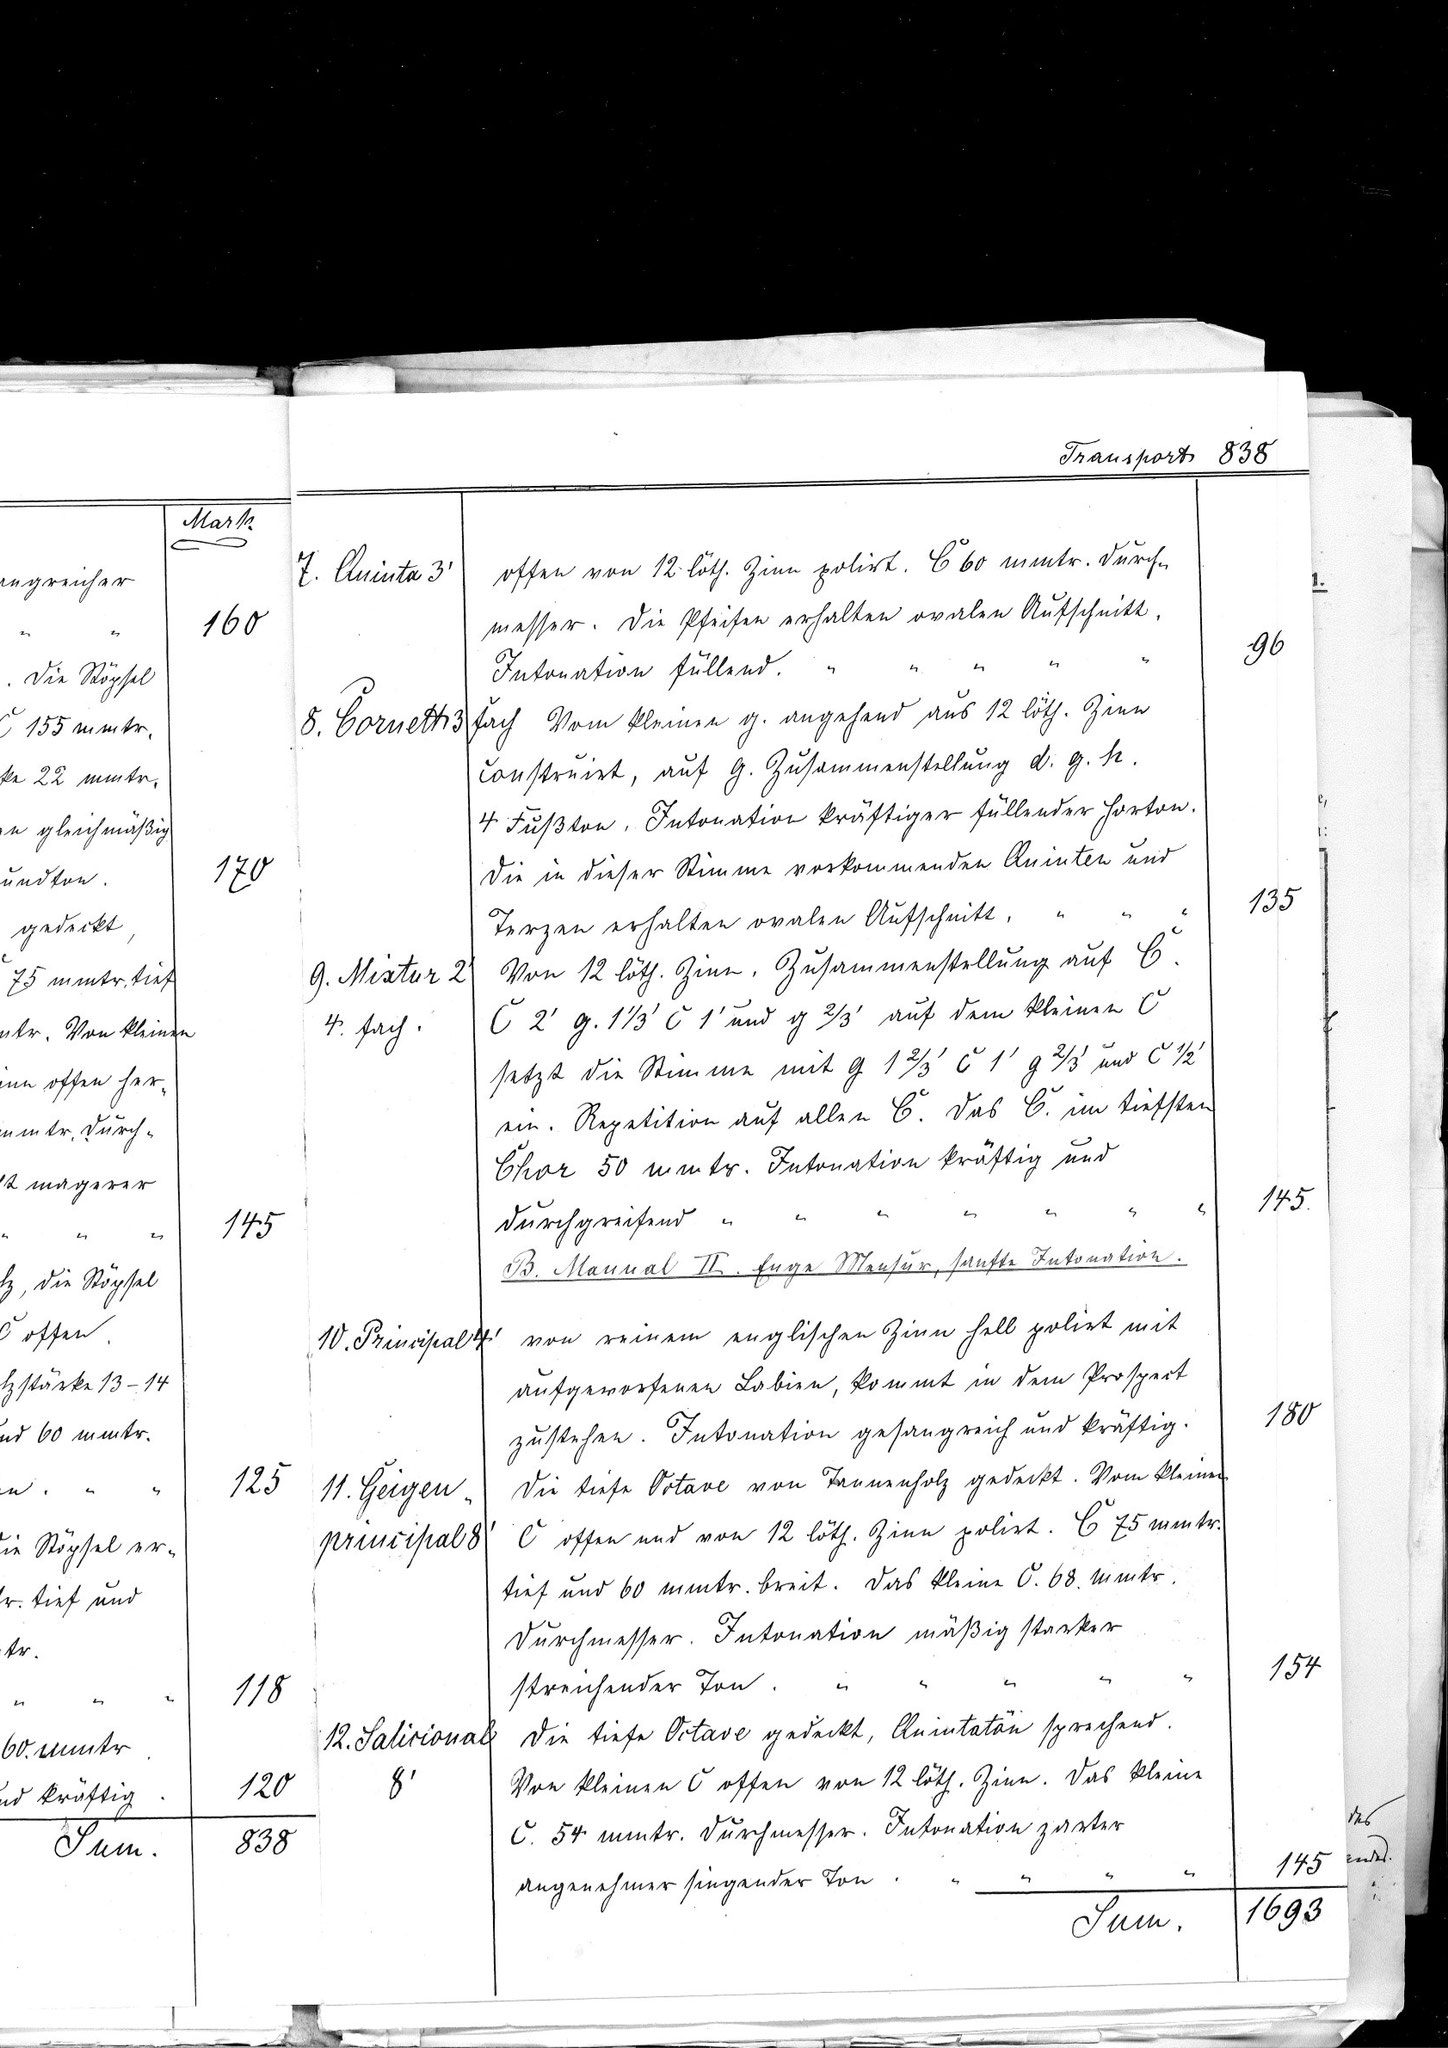 Mark
angreicher
" " 160
. Die Stöpsel
C 155 mmtr.
ke 22 mmtr.
en gleichmäßig
undton. 170
gedeckt,
75 mmtr. tief
mtr. Von kleinen
inn offen her-
mmtr. Durch-
lt magerer
" " " 145
lz, die Stöpsel
C offen.
lzstärke 13-14
und 60 mmtr.
en. " " 125
die Stöpsel er-
tr. tief und
tr.
" " " 118
60. mmtr
und kräftig . 120
Sum. 838
Transport 838
7. Quinta 3' offen von 12 löth. Zinn polirt. C 60 mmtr. Durch-
messer. Die Pfeifen erhalten ovalen Aufschnitt.
Intonation füllend. " " " " " 96
8. Cornett 3 fach Vom kleinen g. angehend aus 12 löth. Zinn
construirt, auf g. Zusammenstellung d. g. h.
4 Fußton. Intonation kräftiger füllender Horton.
Die in dieser Stimme vorkommenden Quinten und
Terzen erhalten ovalen Aufschnitt. " " " 135
9. Mixtur 2' Von 12 löth. Zinn. Zusammenstellung auf C.
4. fach. C 2' g. 1 1/3' C 1' und g 2/3' auf dem kleinen C
setzt die Stimme mit g 1 2/3' C 1' g 2/3' und C 1/2'
ein. Repetition auf allen C. Das C. im tiefsten
Chor 50 mmtr. Intonation kräftig und
durchgreifend " " " " " " " 145.
B. Manual II. Enge Mensur, sanfte Intonation.
10. Principal 4' von reinem englischen Zinn hell polirt mit
aufgeworfenen Labien, kommt in dem Prospect
zustehen. Intonation gesangreich und kräftig. 180
11. Geigen- Die tiefe Octave von Tannenholz gedeckt. Vom kleinen
principal 8' C offen und von 12 löth. Zinn polirt. C 75 mmtr.
tief und 60 mmtr. breit. Das kleine C. 68. mmtr.
Durchmesser. Intonation mäßig starker
streichender Ton. " " " " " 154
12. Salicional Die tiefe Octave gedeckt, Quintatön sprechend.
8' Von kleinen C offen von 12 löth. Zinn. Das kleine
C. 54 mmtr. Durchmesser. Intonation zarter
angenehmer singender Ton . " " " " 145
Sum. 1693
des